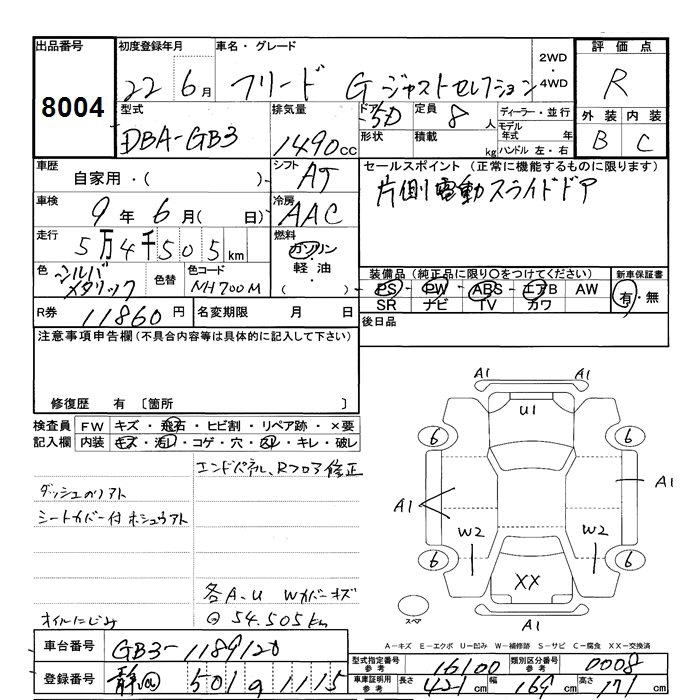 出品番号 初度登録年月 車名・グレード 2WD・4WD 評価点
8004 22 6月 フリード G ジャストセレクション R
型式 排気量 ドア 5D 定員 8人 ディーラー・並行 外装 内装
DBA-GB3 1490cc 形状 積載 kg モデル年式 年 B C
ハンドル 左・右
車歴 自家用・( ) シフト AT セールスポイント (正常に機能するものに限ります)
片側電動スライドドア
車検 9年 6月( 日) 冷房 AAC
走行 5万4千505km 燃料 ガソリン・軽油・( )
色 シルバメタリック 色替 色コード NH700M 装備品 (純正品に限り○をつけてください) 新車保証書
PS PW ABS エアB AW 有・無
SR ナビ TV カワ
R券 11860円 名変期限 月 日 後日品
注意事項申告欄 (不具合内容等は具体的に記入して下さい)
修復歴 有 〔箇所 〕
検査員記入欄 FW キズ・飛石・ヒビ割・リペア跡・×要
内装 キズ・汚レ・コゲ・穴・スレ・キレ・破レ
エンドパネル、Rフロア修正
ダッシュのリアト
シートカバー付 ホシュウアト
各A.U Wカバーキズ
◎54.505km
オイルにじみ
A1 A1
U1
6 6
A1 A1
W2 W2
6 6
XX
スペア A1
A-キズ E-エクボ U-凹み W-補修跡 S-サビ C-腐食 XX-交換済
車台番号 GB3-1189120 型式指定番号 参考 16100 類別区分番号 参考 0008
登録番号 静岡 501 9 1115 車庫証明用 参考 長さ 421cm 幅 169cm 高さ 171cm